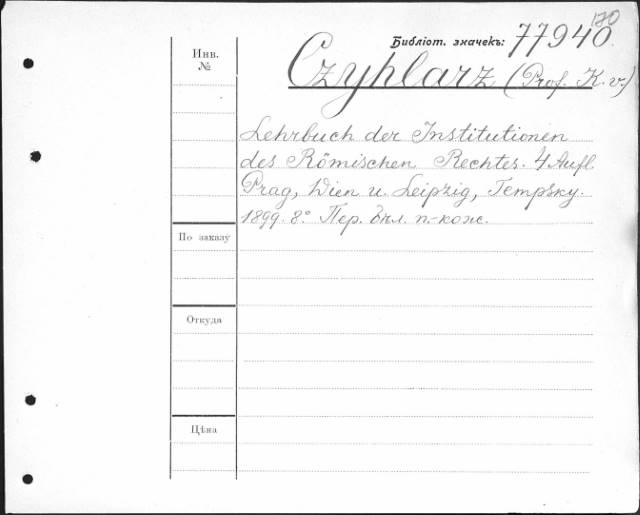 170
Библіот. значекъ: 77940.
Инв.
№
Czyhlarz (Prof. K. v.)
Lehrbuch der Institutionen
des Römischen Rechtes. 4 Aufl
Prag, Wien u. Leipzig, Tempsky.
1899. 8° Пер. бѣл. п.-кож.
По заказу
Откуда
Цѣна